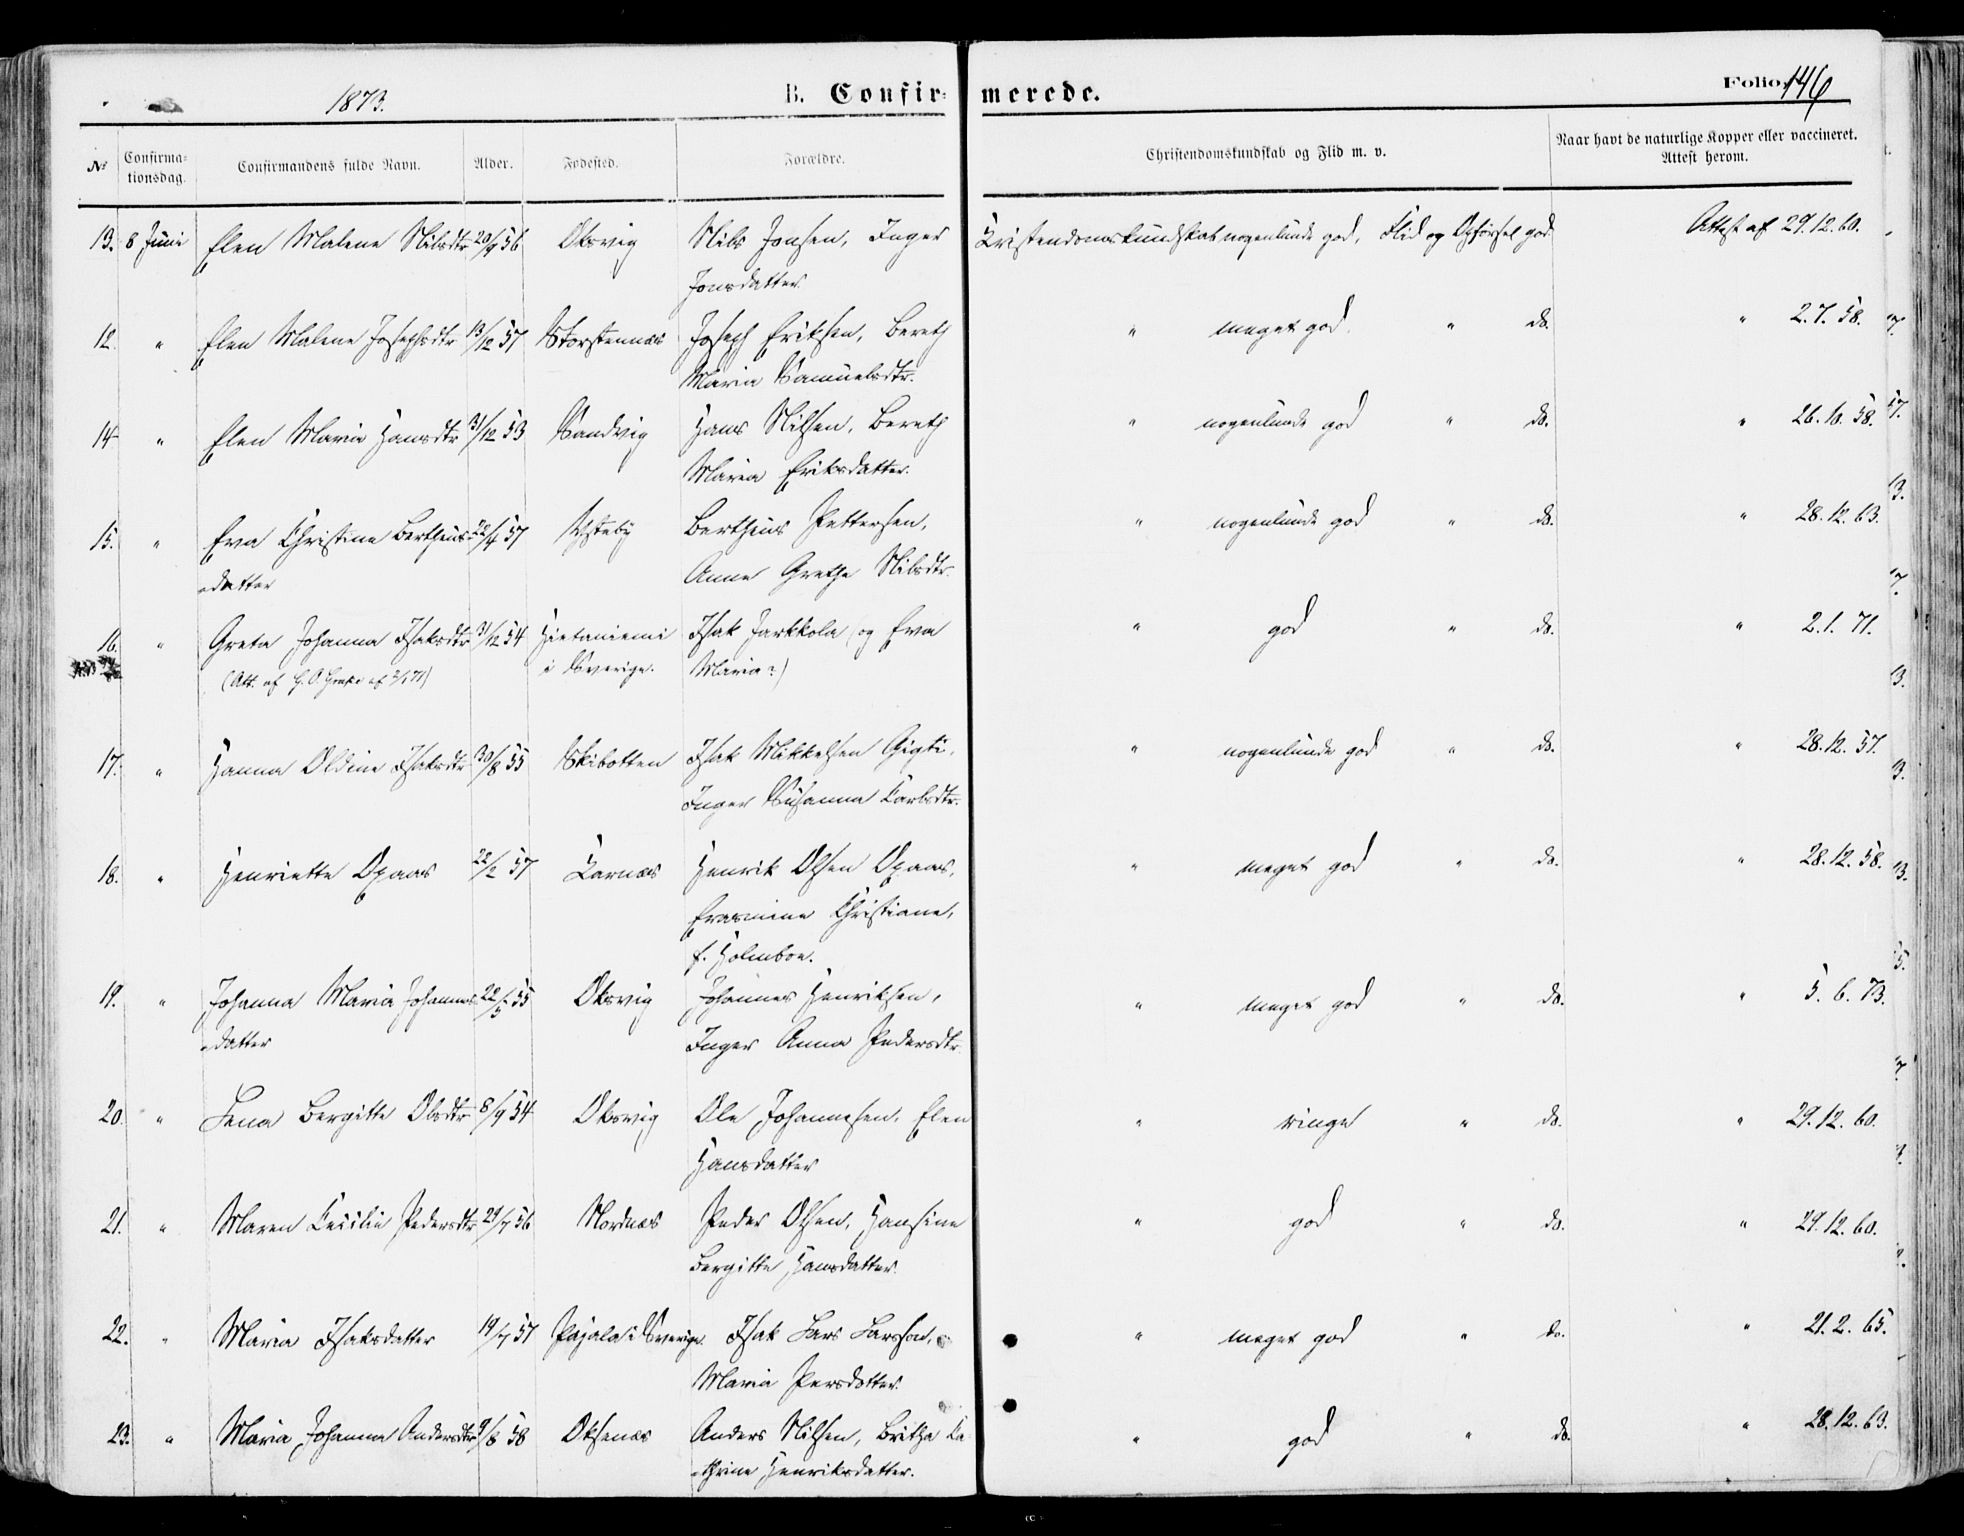 1873.
B. Confirmerede.
Folio 146
No
Confirmationsdag.
Confirmandens fulde Navn.
Alder.
Fødested.
Forældre.
Christendomskundskab og Flid m. v.
Naar havt de naturlige Kopper eller vaccineret.
Attest herom.
13. 8 Juni Elen Malene Nilsdtr 20/9 56 Oksvig Nils Jonsen, Inger Kristendomskundskab nogenlunde god, Flid og Opførsel god. Attest af 29.12.60.
Jonsdatter
12. " Elen Malene Josephsdtr 13/12 57 Storstennæs Joseph Eriksen, Bereth " meget god. " do. " 2.7.58.
Maria Samuelsdtr.
14 " Elen Maria Hansdtr 31/12 53 Sandvig Hans Nilsen, Bereth " nogenlunde god " do. " 26.10.58.
Maria Eriksdatter.
15. " Eva Christine Bertheus- 22/4 57 Ysteby Bertheus Pettersen, " nogenlunde god " do. " 28.12.63.
datter Anne Grethe Nilsdtr.
16. " Greta Johanna Isaksdtr 31/12 54 Hietaniemi Isak Jarkkola (og Eva " god " do. " 2.1.71.
(Att. af af 2/1 71) i Sverige. Maria?)
17. " Hanna Oldine Isaksdtr 30/8 55 Skibotten Isak Mikkelsen Gigti, " nogenlunde god " do. " 28.12.57.
Inger Susanna Carlsdtr.
18. " Henriette Opaas 22/2 57 Karnæs Henrik Olsen Opaas, " meget god " do. " 28.12.58.
Erasmine Christiane,
f. Holmboe.
19. " Johanna Maria Johannes- 22/5 55 Oksvig Johannes Henriksen, " meget god " do. " 5.6.73.
datter Inger Anna Pedersdtr.
20. " Lena Bergitte Olsdtr 8/9 54 Oksvig Ole Johannesen, Elen " ringe " do. " 29.12.60.
Hansdatter
21. " Maren Cecilie Pedersdtr 29/7 56 Nordnæs Peder Olsen, Hansine " god " do. " 29.12.60.
Bergitte Hansdatter.
22. " Maria Isaksdatter 19/7 57 Pajala i Sverige. Isak Lars Larsson, " meget god " do. " 21.2.65.
Maria Persdotter.
23. " Maria Johanna Andersdtr 9/8 58 Oksenæs Anders Nilsen, Britha Ca- " god " do. " 28.12.63.
thrine Henriksdatter.